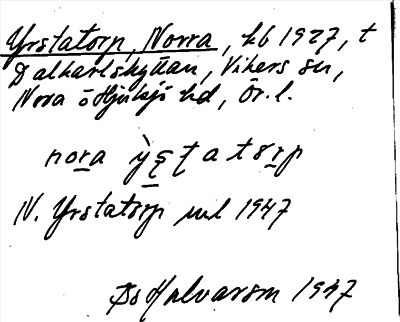 Yrstatorp, Norra, hb 1927, t
Dalkarlshyttan, Vikers sn,
Nora o Hjulsjö hd, Ör. l.
nora ỳs̱ṭatorp
N. Yrstatorp uvl 1947
Bs Halvarsn 1947